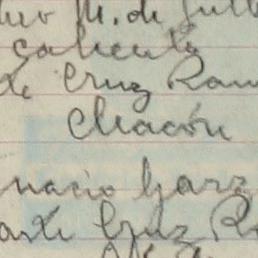 M. de
caliente
de Cruz Ram
Chacón
nacio Garz
arte Cruz R